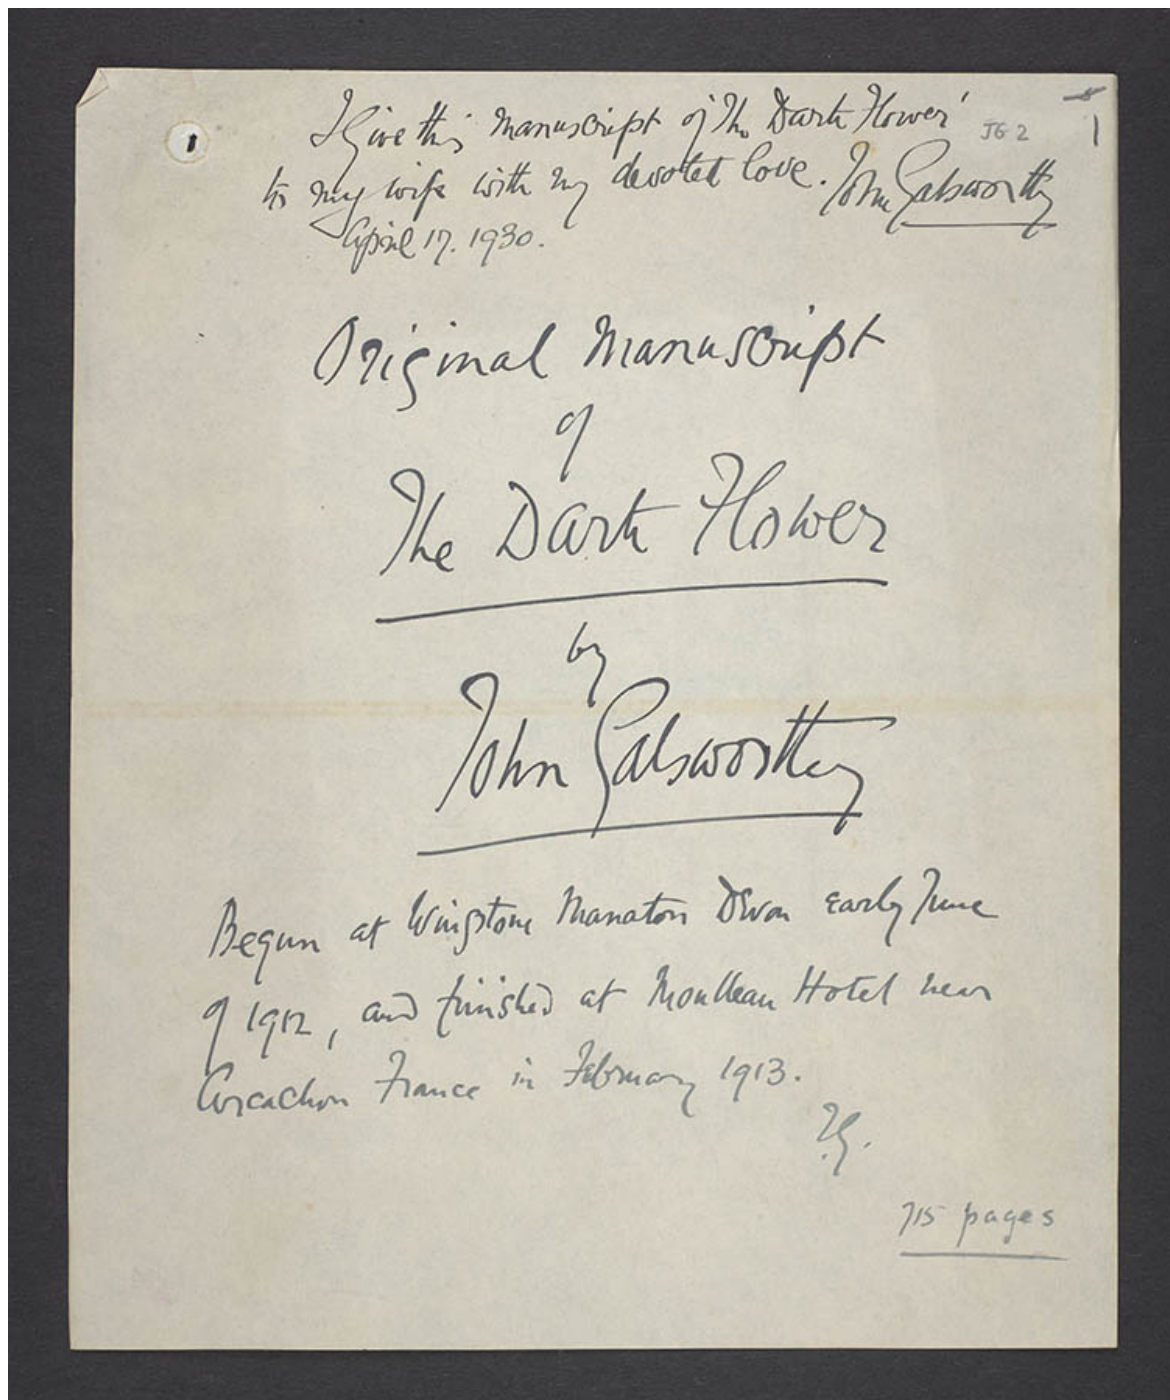 I give this manuscript of 'The Dark Flower' JG 2 1
to my wife with my devoted love. John Galsworthy
April 17. 1930.
Original Manuscript
of
The Dark Flower
by
John Galsworthy
Begun at Wingstone Manaton Devon early June
of 1912, and finished at Moulleau Hotel near
Arcachon France in February 1913.
J.G.
715 pages